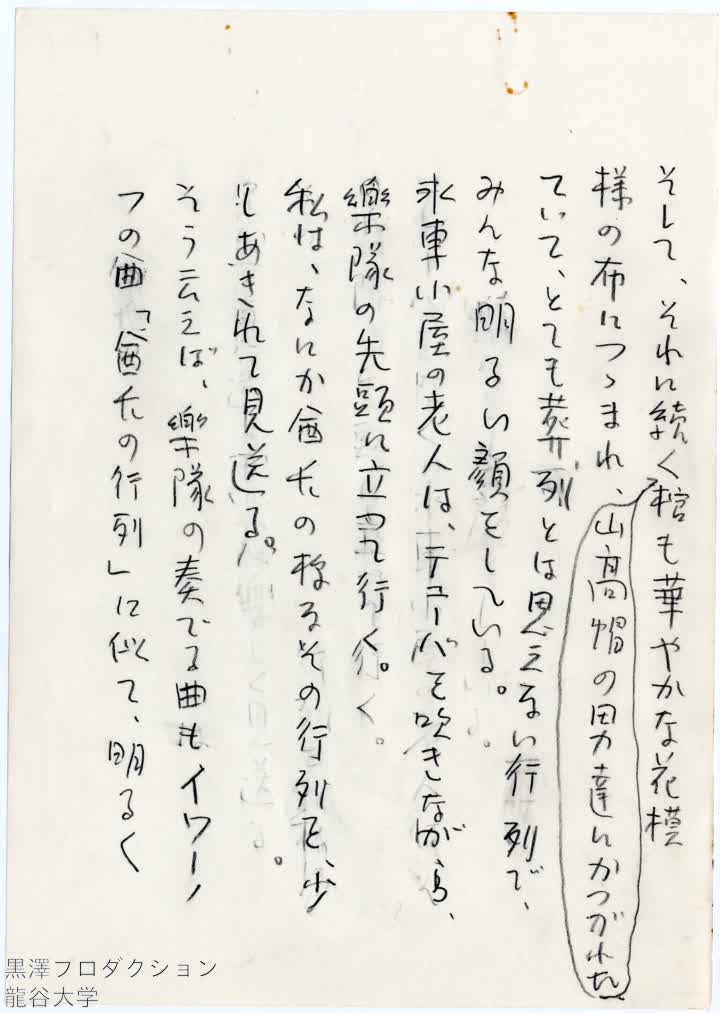 そして、それに続く棺も華やかな花模
様の布につゝまれ、山高帽の男達にかつがれた
ていて、とても葬列とは思えない行列で、
みんな明るい顔をしている。
水車小屋の老人は、テューバを吹きながら、
樂隊の先頭に立って行く。
私は、なにか酋長の様なその行列を、少
しあきれて見送る。
そう云えば、樂隊の奏でる曲も、イワーノ
フの曲「酋長の行列」に似て、明るく
黒澤プロダクション
龍谷大学